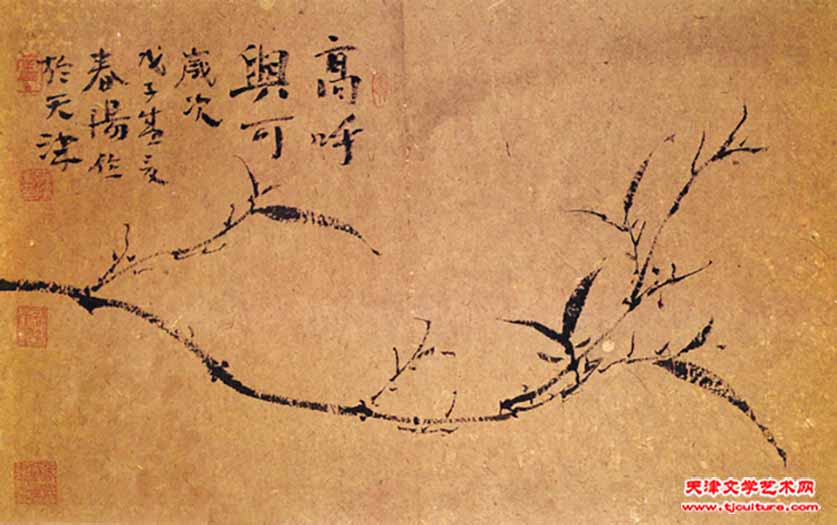 高呼
與可
歲次
戊子盛夏
春陽作
於天津
天津文学艺术网
http://www.tjculture.com